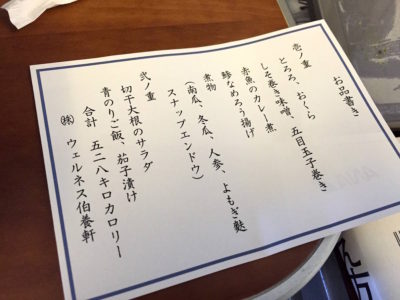 お品書き
壱ノ重
とろろ、おくら
しそ巻き味噌、五目玉子巻き
赤魚のカレー煮
鯵なめろう揚げ
煮物
（南瓜、冬瓜、人参、よもぎ麩
スナップエンドウ）
弐ノ重
切干大根のサラダ
青のりご飯、茄子漬け
合計 五二八キロカロリー
㈱ ウェルネス伯養軒